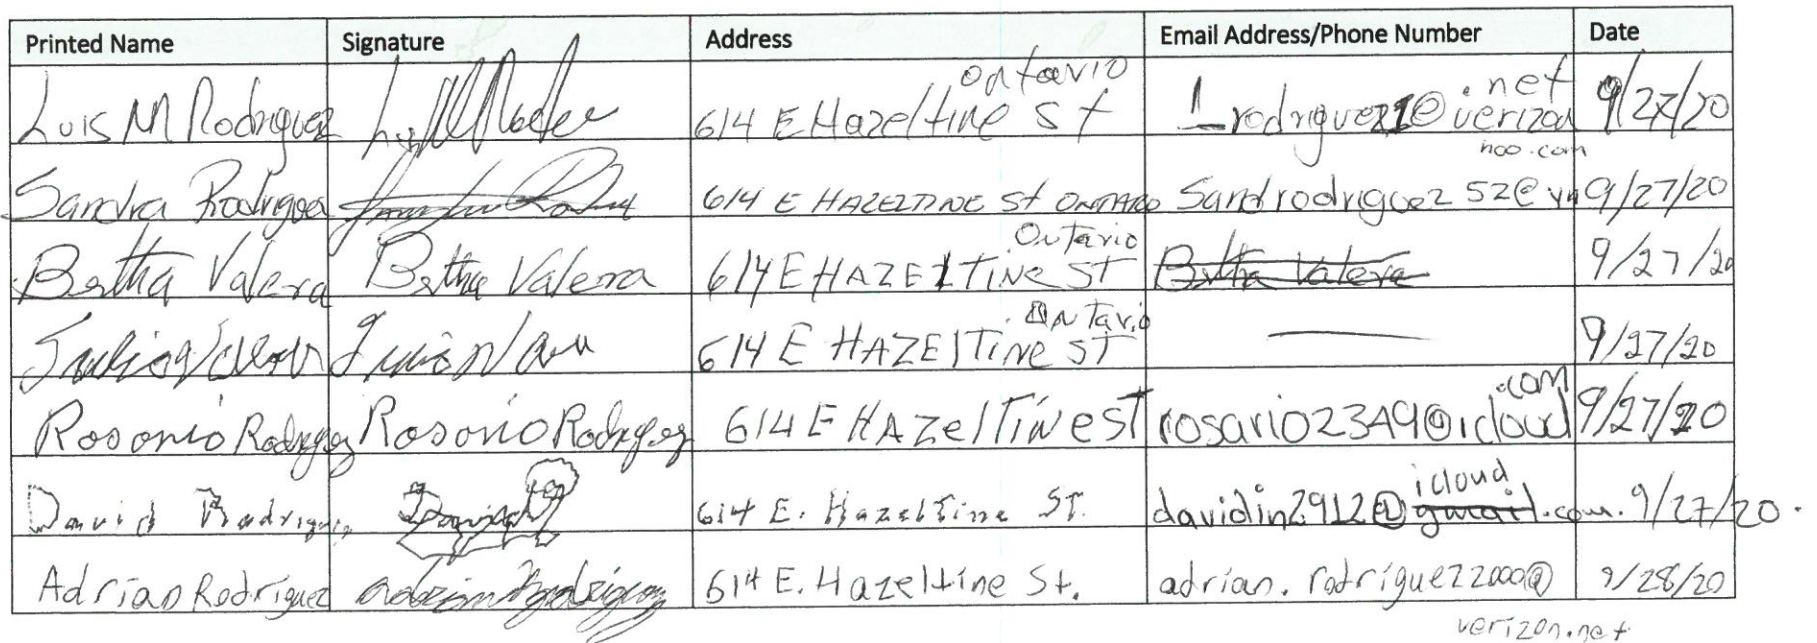 Printed Name Signature Address Email Address/Phone Number Date
Luis M Rodriguez 614 E Hazeltine St ontario 1rodriguez21@verizon.net 9/27/20
Sandra Rodriguez 614 E HAZELTINE St ONTARIO Sandrodriguez52@yahoo.com 9/27/20
Bertha Valera Bertha Valera 614 E HAZElTiNE ST Ontario Bertha Valera 9/27/20
614 E HAZElTiNE ST ONTario — 9/27/20
Rosario Rodriguez Rosario Rodriguez 614 E HAZelTiNe ST rosario2349@icloud.com 9/27/20
David Rodriguez David 614 E. Hazeltine ST. davidin2912@gmail icloud.com. 9/27/20.
Adrian Rodríguez Adrian Rodriguez 614 E. Hazeltine St. adrian.rodríguez2000@verizon.net 9/28/20